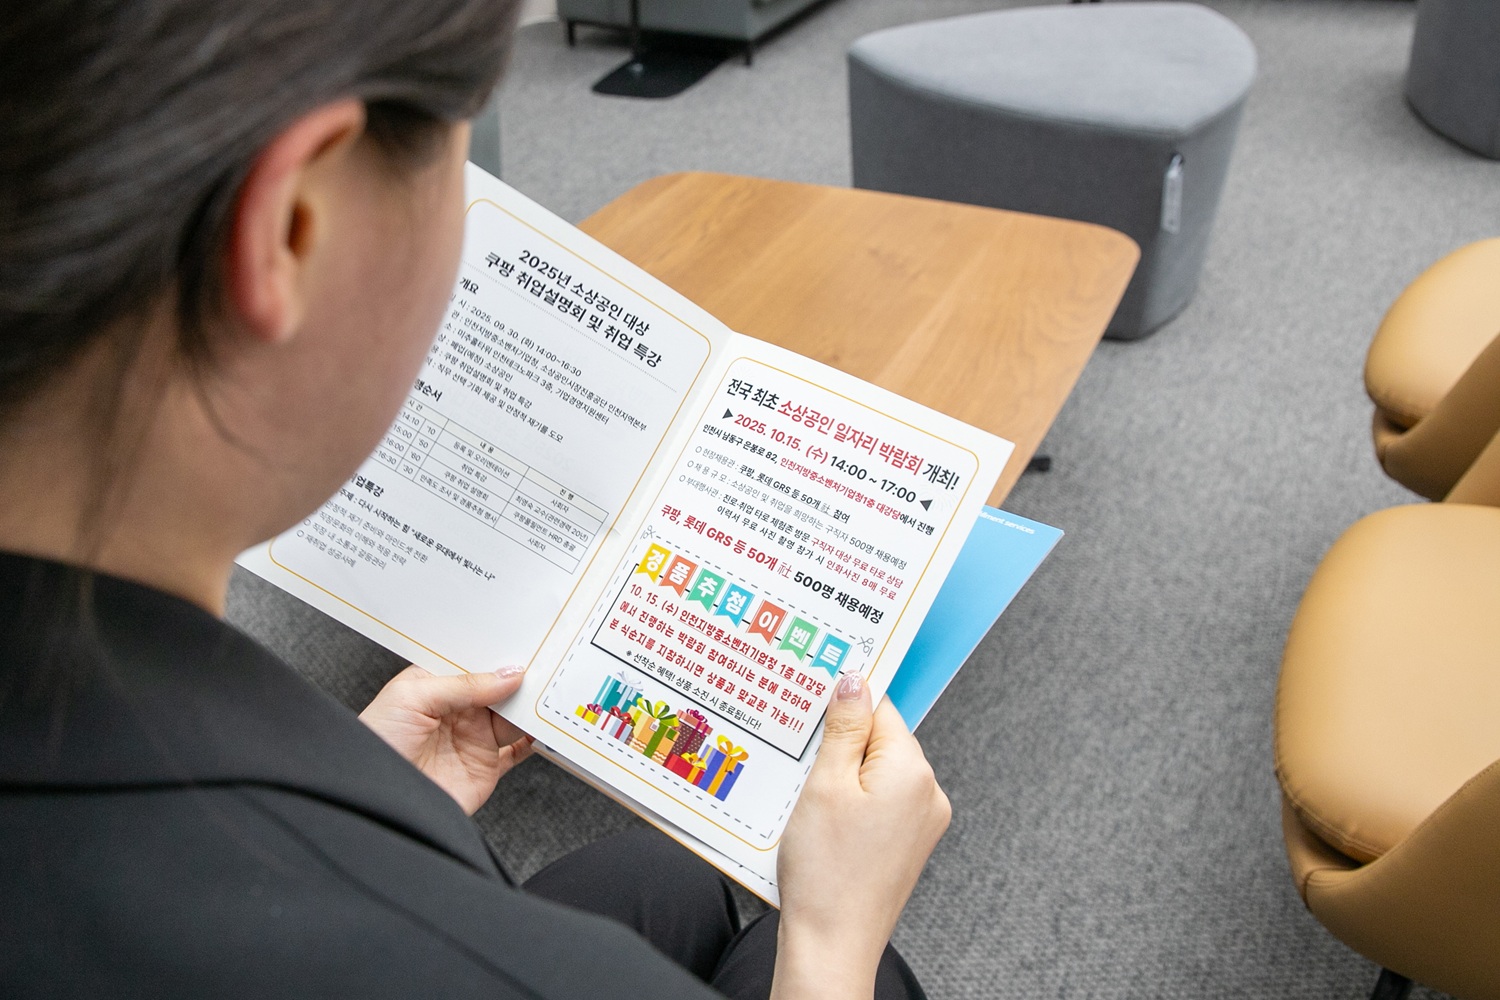 2025년 소상공인 대상
쿠팡 취업설명회 및 취업 특강
개요
시 : 2025. 09. 30. (화) 14:00~16:30
관 : 인천지방중소벤처기업청, 소상공인시장진흥공단 인천지역본부
소 : 미추홀타워 인천테크노파크 3층, 기업경영지원센터
상 : 폐업(예정) 소상공인
용 : 쿠팡 취업설명회 및 취업 특강
직무 선택 기회 제공 및 안정적 재기를 도모
행순서
시 간 내 용 진 행
14:10 '10 등록 및 오리엔테이션 사회자
15:00 '50 취업 특강 최영숙 교수(관련경력 20년)
16:00 '60 쿠팡 취업 설명회 쿠팡풀필먼트 HRD 총괄
16:30 '30 만족도 조사 및 경품추첨 행사 사회자
업특강
주제 : 다시 시작하는 힘 "새로운 무대에서 빛나는 나"
정적 재기 준비와 마인드셋 전환
직장문화의 이해와 적응 전략
○ 직장 내 소통과 갈등관리
○ 재취업 성공사례
전국 최초 소상공인 일자리 박람회 개최!
▶ 2025. 10.15. (수) 14:00 ~ 17:00 ◀
인천시 남동구 은봉로 82, 인천지방중소벤처기업청1층 대강당에서 진행
○ 현장채용관 : 쿠팡, 롯데 GRS 등 50개 社 참여
○ 채 용 규 모 : 소상공인 및 취업을 희망하는 구직자 500명 채용예정
○ 부대행사관 : 진로·취업 타로 체험존 방문 구직자 대상 무료 타로 상담
이력서 무료 사진 촬영 참가 시 인화사진 8매 무료
쿠팡, 롯데 GRS 등 50개 社 500명 채용예정
경품추첨이벤트
10. 15. (수) 인천지방중소벤처기업청 1층 대강당
에서 진행하는 박람회 참여하시는 분에 한하여
본 식순지를 지참하시면 상품과 맞교환 가능!!!
※ 선착순 혜택! 상품 소진 시 종료됩니다!
services